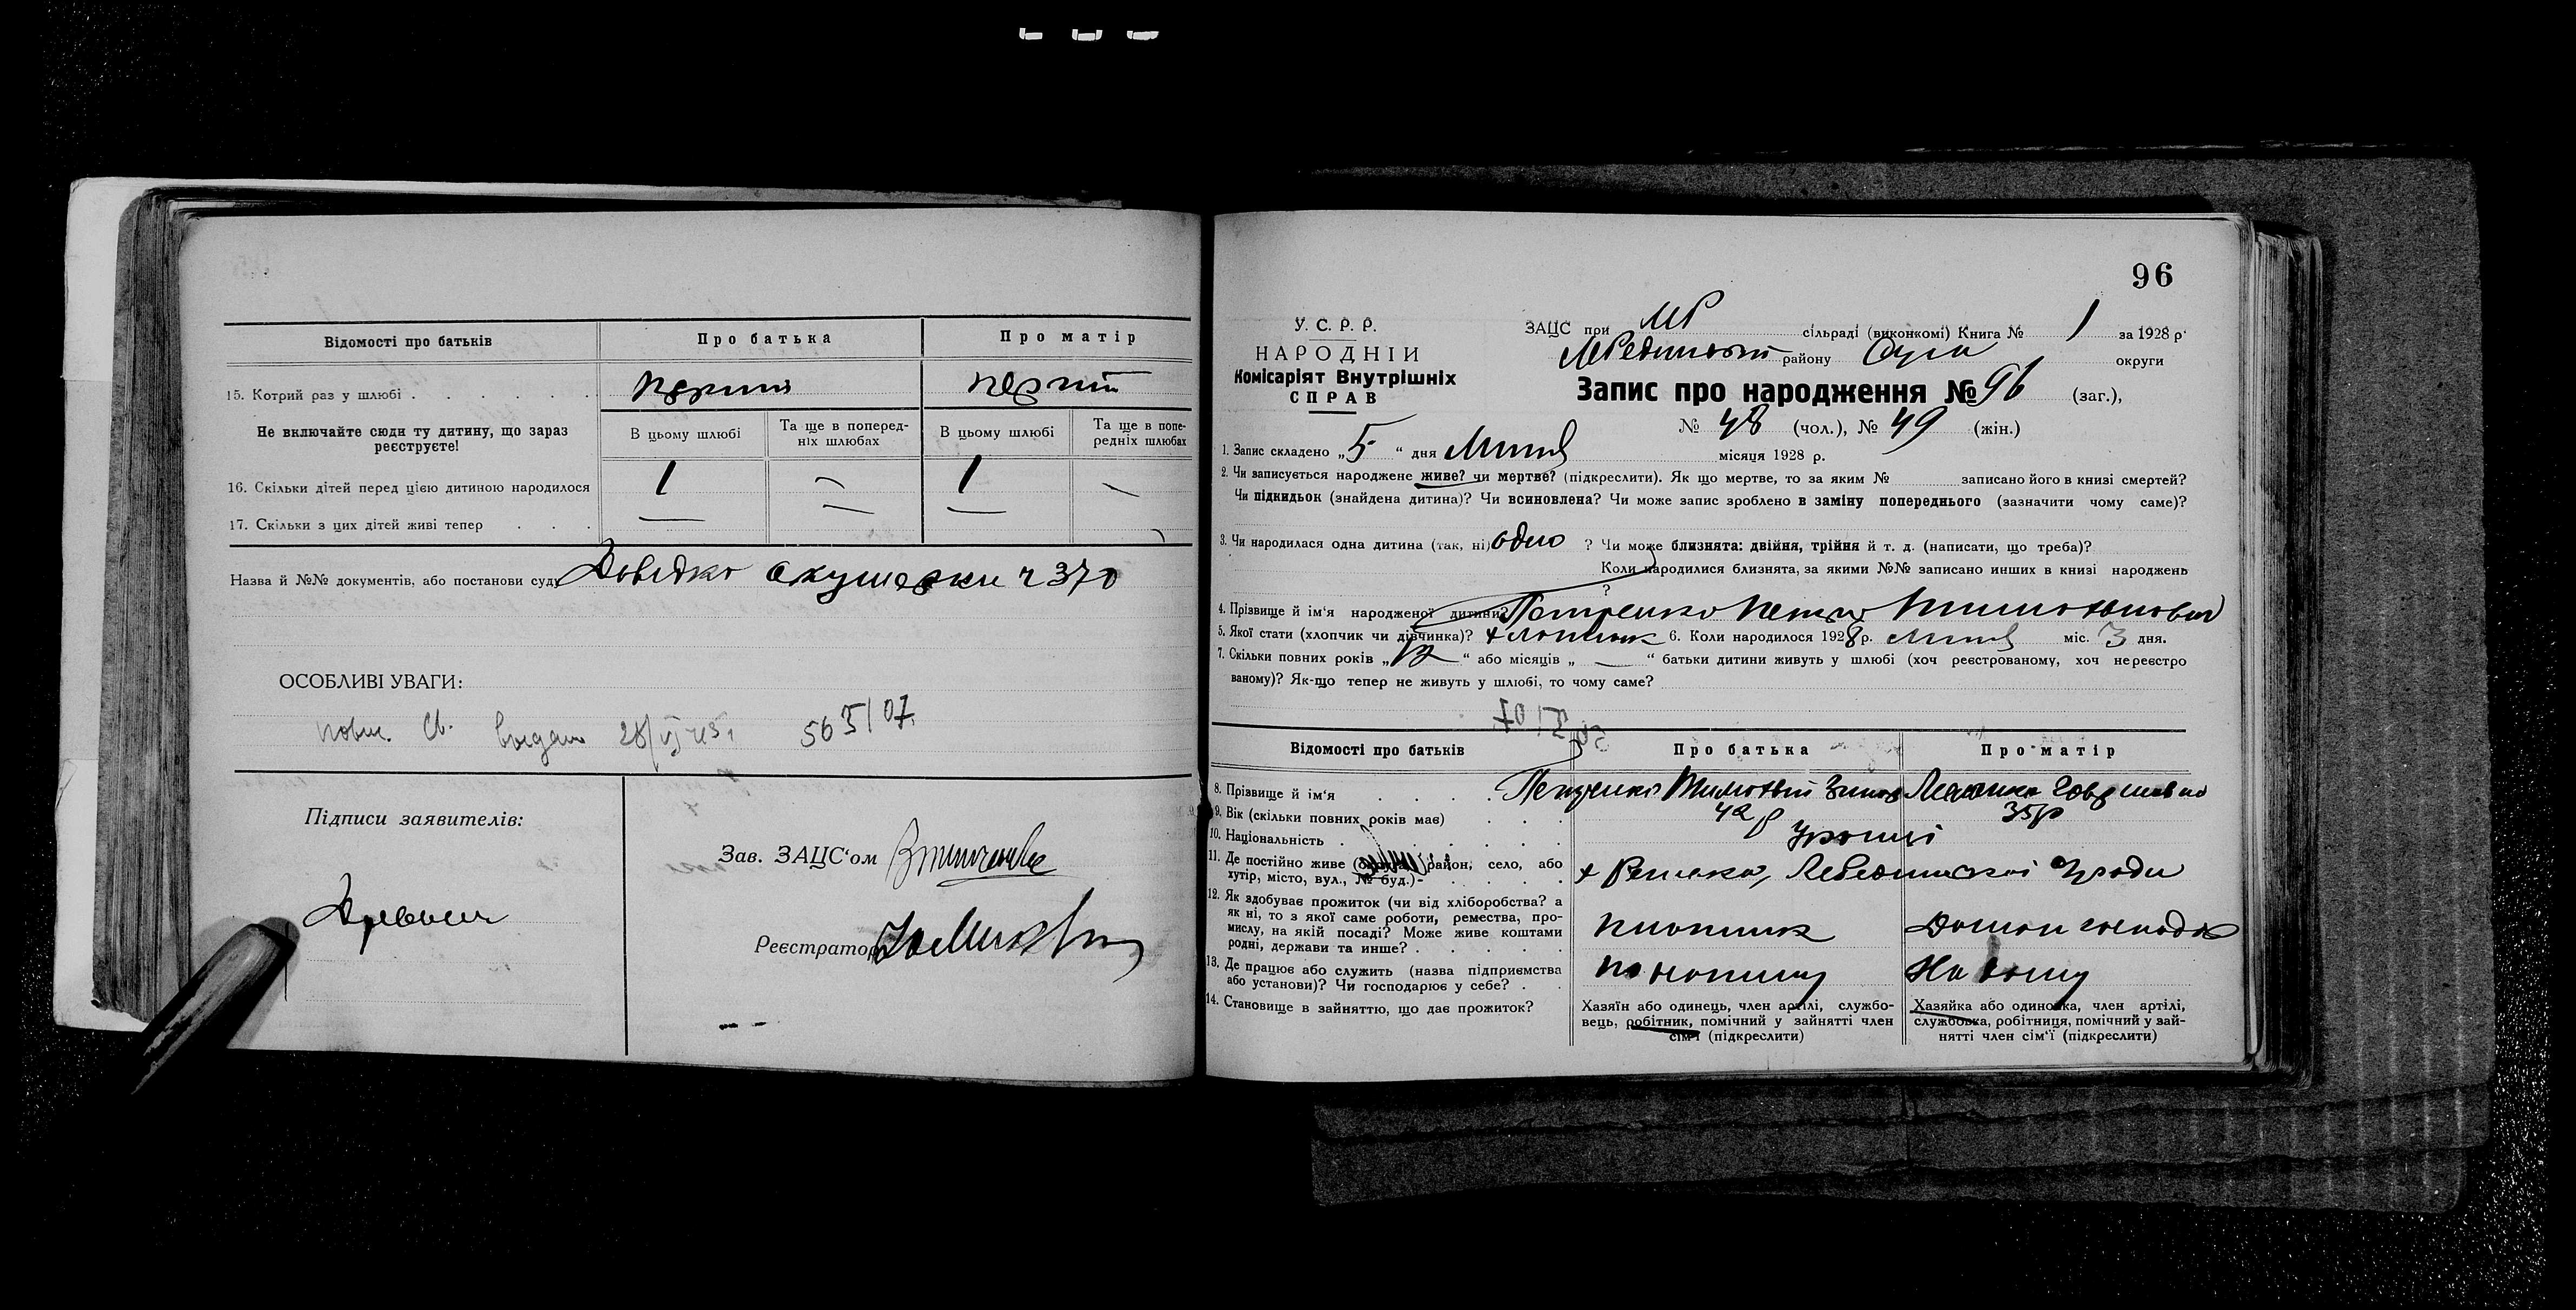 Відомості про батьків
Про батька
Про матір
15. Котрий раз у шлюбі . . . . . .
перший
перший
Не включайте сюди ту дитину, що зараз реєструєте!
В цьому шлюбі
Та ще в поперед-
ніх шлюбах
В цьому шлюбі
Та ще в попе-
редніх шлюбах
16. Скільки дітей перед цією дитиною народилося
1
—
1
—
17. Скільки з цих дітей живі тепер . . .
—
—
—
Назва й №№ документів, або постанови суду Довідка акушерки ч 370
ОСОБЛИВІ УВАГИ:
повт. св. видан 563/07.
Підписи заявителів:
Зав. ЗАЦС'ом
Реєстратор
96
У. С. Р. Р.
НАРОДНІЙ
Комісаріят Внутрішніх
СПРАВ
ЗАЦС при сільраді (виконкомі) Книга № 1 за 1928 р.
району Сум округи
Запис про народження № 96 (заг.),
№ 48 (чол.), № 49 (жін.)
1. Запис складено „ 5 “ дня місяця 1928 р.
2. Чи записується народжене живе? чи мертве? (підкреслити). Як що мертве, то за яким № записано його в книзі смертей?
Чи підкидьок (знайдена дитина)? Чи всиновлена? Чи може запис зроблено в заміну попереднього (зазначити чому саме)?
3. Чи народилася одна дитина (так, ні) одно ? Чи може близнята: двійня, трійня й т. д. (написати, що треба)?
Коли народилися близнята, за якими №№ записано инших в книзі народжень
?
4. Прізвище й ім'я народженої дитини? Петренко Петро Тимофійович
5. Якої стати (хлопчик чи дівчинка)? хлопчик 6. Коли народилося 1928 р. міс. 3 дня.
7. Скільки повних років „ 12 “ або місяців „ — “ батьки дитини живуть у шлюбі (хоч реєстрованому, хоч нереєстро
ваному)? Як-що тепер не живуть у шлюбі, то чому саме?
Відомості про батьків
Про батька
Про матір
8. Прізвище й ім'я . . . . Петренко Тимофій
9. Вік (скільки повних років має) . . .
42 р
35 р
10. Національність . . . . . . .
11. Де постійно живе (округа, район, село, або
хутір, місто, вул., № буд.)- . . . . .
12. Як здобуває прожиток (чи від хліборобства? а
як ні, то з якої саме роботи, ремества, про-
мислу, на якій посаді? Може живе коштами
родні, держави та инше? . . . . .
Домаш господар
13. Де працює або служить (назва підприємства
або установи)? Чи господарює у себе? . .
На дому
14. Становище в зайняттю, що дає прожиток?
Хазяїн або одинець, член артілі, службо-
вець, робітник, помічний у зайнятті член
сім'ї (підкреслити)
Хазяйка або одиночка, член артілі,
службовка, робітниця, помічний у зай-
нятті член сім'ї (підкреслити)